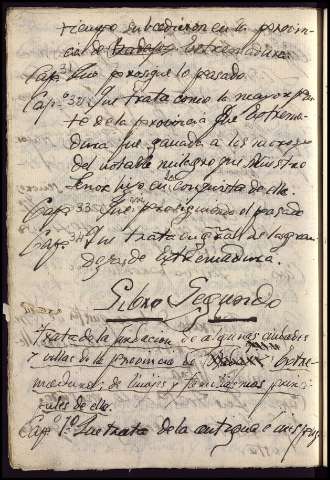 tiempo subcedieron en la provin-
cia de Extremadura.
Capº 31 Que prosigue lo pasado
Capº 32 Que trata como la mayor par
te de la provincia que Extrema-
dura fue ganada a los moros y
del notable milagro que Nuestro
Señor hizo en la conquista de ella.
Capº 33 Que prosiguiendo el pasado
Capº 34 Que trata en gral de las gran
dezas de Extremadura.
Libro Segundo
Trata de la fundacion de algunas ciudades
y villas de la provincia de Extre-
madura, de linajes y familias mas princi
pales de ella.
Capº 1º Que trata de la antigua é insig